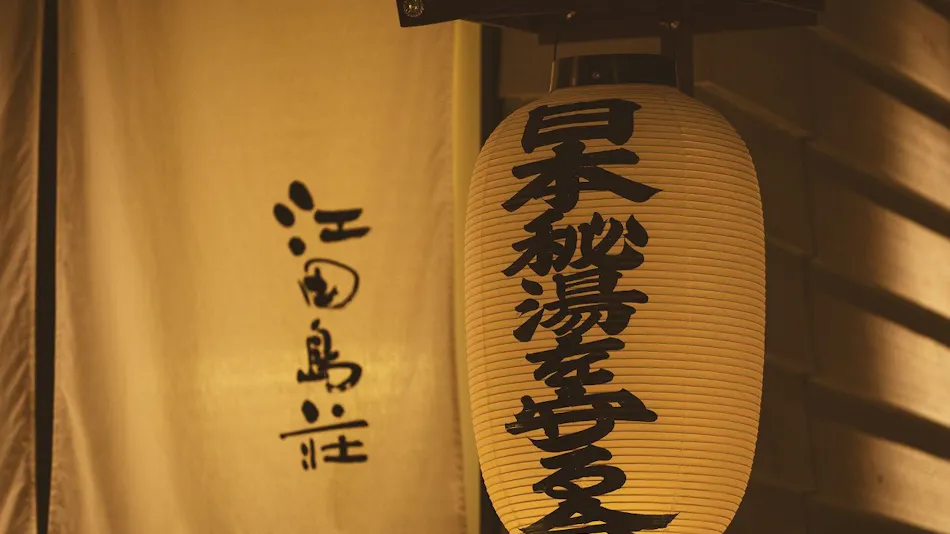 日本秘湯を守る会
江田島荘